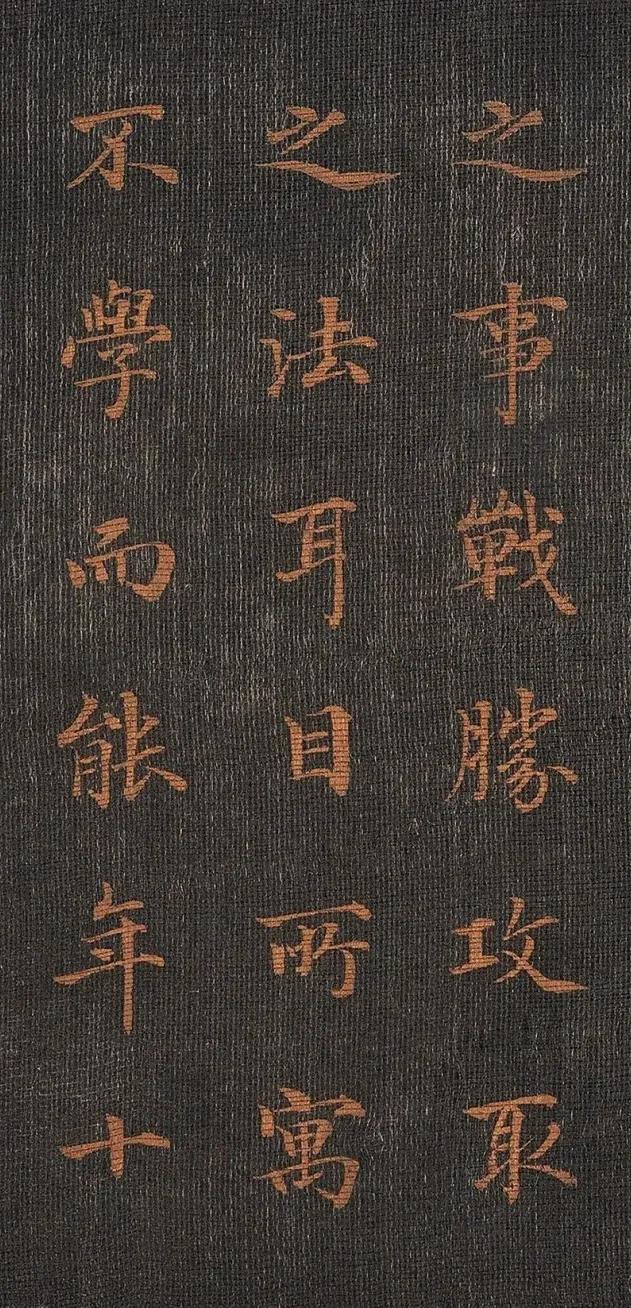 之事戰勝攻取
之法耳目所寓
不學而能年十